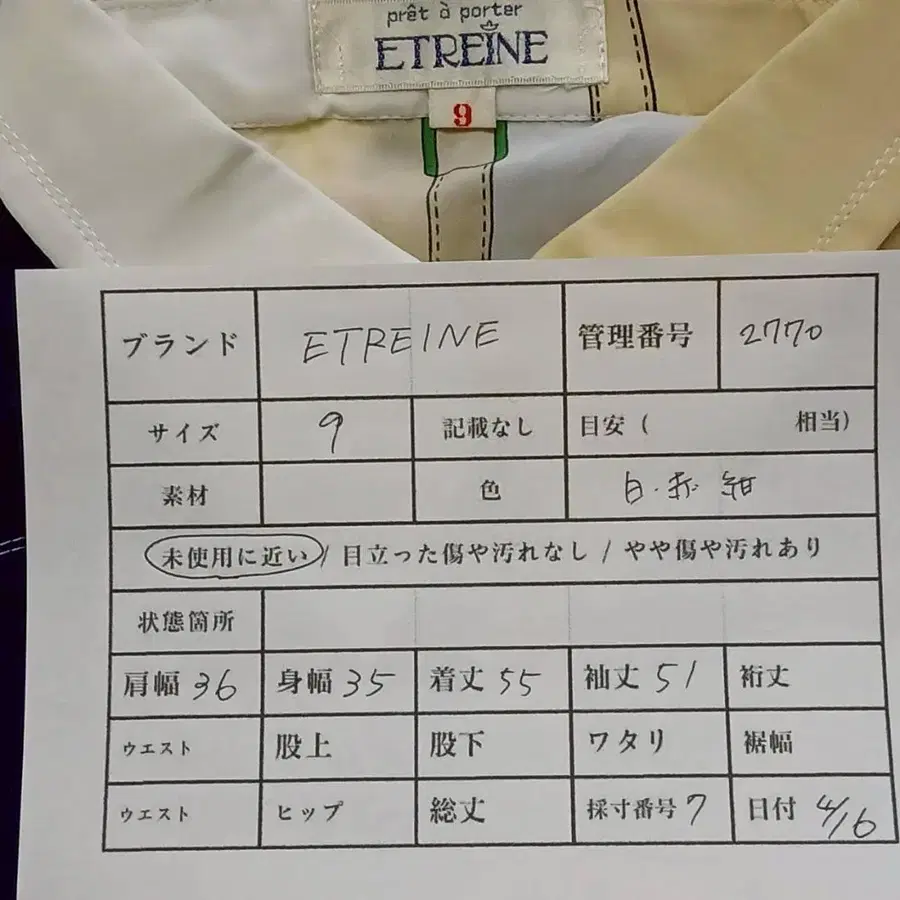 prêt à porter
ETREINE
9
ブランド ETREINE 管理番号 2770
サイズ 9 記載なし 目安( 相当)
素材 色 白・赤 紺
未使用に近い / 目立った傷や汚れなし / やや傷や汚れあり
状態箇所
肩幅 36 身幅 35 着丈 55 袖丈 51 裄丈
ウエスト 股上 股下 ワタリ 裾幅
ウエスト ヒップ 総丈 採寸番号 7 日付 4/16